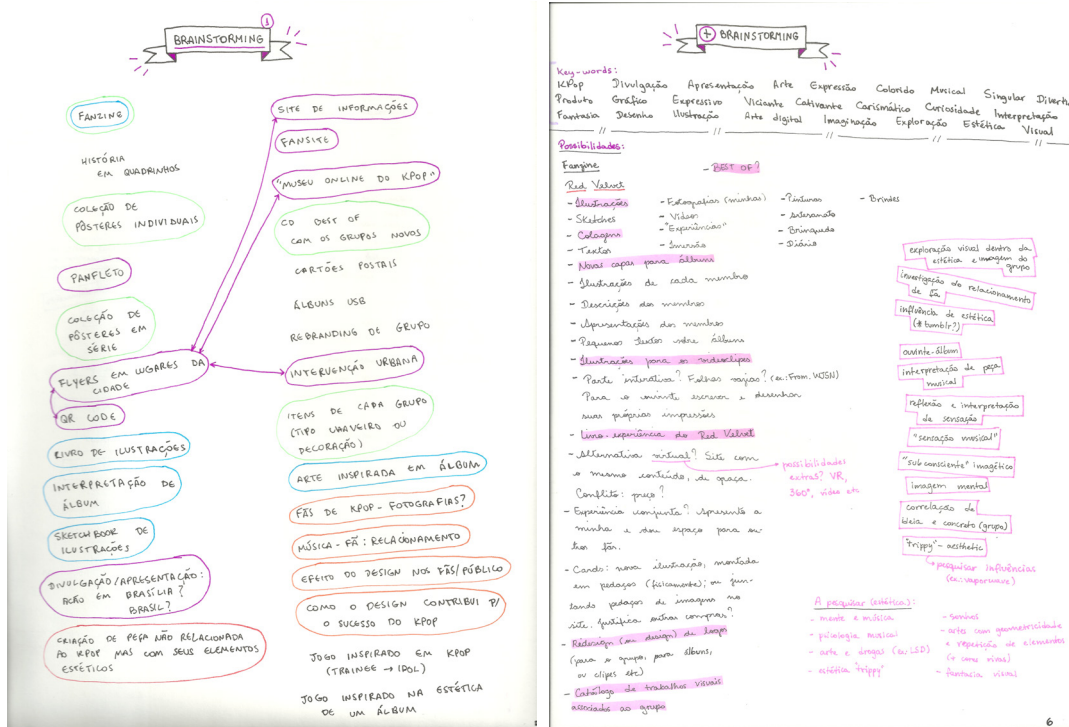 1
BRAINSTORMING
FANZINE
HISTÓRIA
EM QUADRINHOS
COLEÇÃO DE
PÔSTERES INDIVIDUAIS
PANFLETO
COLEÇÃO DE
PÔSTERES EM
SÉRIE
FLYERS EM LUGARES DA
CIDADE
QR CODE
LIVRO DE ILUSTRAÇÕES
INTERPRETAÇÃO DE
ÁLBUM
SKETCHBOOK DE
ILUSTRAÇÕES
DIVULGAÇÃO/APRESENTAÇÃO:
AÇÃO EM BRASÍLIA?
BRASIL?
CRIAÇÃO DE PEÇA NÃO RELACIONADA
AO KPOP MAS COM SEUS ELEMENTOS
ESTÉTICOS
SITE DE INFORMAÇÕES
FANSITE
"MUSEU ONLINE DO KPOP"
CD BEST OF
COM OS GRUPOS NOVOS
CARTÕES POSTAIS
ÁLBUNS USB
REBRANDING DE GRUPO
INTERVENÇÃO URBANA
ITENS DE CADA GRUPO
(TIPO CHAVEIRO OU
DECORAÇÃO)
ARTE INSPIRADA EM ÁLBUM
FÃS DE KPOP - FOTOGRAFIAS?
MÚSICA - FÃ: RELACIONAMENTO
EFEITO DO DESIGN NOS FÃS/PÚBLICO
COMO O DESIGN CONTRIBUI P/
O SUCESSO DO KPOP
JOGO INSPIRADO EM KPOP
(TRAINEE → IDOL)
JOGO INSPIRADO NA ESTÉTICA
DE UM ÁLBUM
+ BRAINSTORMING
Key-words:
KPop Divulgação Apresentação Arte Expressão Colorido Musical Singular Diverti
Produto Gráfico Expressivo Viciante Cativante Carismático Curiosidade Interpretação
Fantasia Desenho Ilustração Arte digital Imaginação Exploração Estética Visual
Possibilidades:
Fanzine - BEST OF?
Red Velvet
- Ilustrações - Fotografias (minhas) - Pinturas - Brindes
- Sketches - Vídeos - Artesanato
- Colagens - "Experiências" - Brinquedo
- Textos - Imersão - Diário
- Novas capas para álbuns
- Ilustrações de cada membro
- Descrições dos membros
- Apresentações dos membros
- Pequenos textos sobre álbuns
- Ilustrações para os videoclipes
- Parte interativa? Folhas vazias? (ex: From. WJSN)
Para o ouvinte escrever e desenhar
suas próprias impressões
- Livro experiência do Red Velvet
- Alternativa virtual? Site com
o mesmo conteúdo, de graça.
Conflito: preço?
possibilidades
extras? VR,
360°, vídeo etc
- Experiência conjunta? Apresento a
minha e dou espaço para ou-
tros fãs.
- Cards: nova ilustração, montada
em pedaços (fisicamente); ou jun-
tando pedaços de imagens no
site. Justifica outras compras?
- Redesign (ou design) de logos
(para o grupo, para álbuns,
ou clipes etc)
- Catálogo de trabalhos visuais
associados ao grupo
exploração visual dentro da
estética e imagem do
grupo
investigação do relacionamento
de fã
influência de estética
(#tumblr?)
ouvinte-álbum
interpretação de peça
musical
reflexão e interpretação
da sensação
"sensação musical"
"subconsciente" imagético
imagem mental
correlação de
ideia e concreto (grupo)
"trippy" - aesthetic
pesquisar influências
(ex: vaporwave)
A pesquisar (estética):
- mente e música
- psicologia musical
- arte e drogas (ex: LSD)
- estética "trippy"
- sonhos
- artes com geometricidade
e repetição de elementos
(+ cores vivas)
- fantasia visual
6